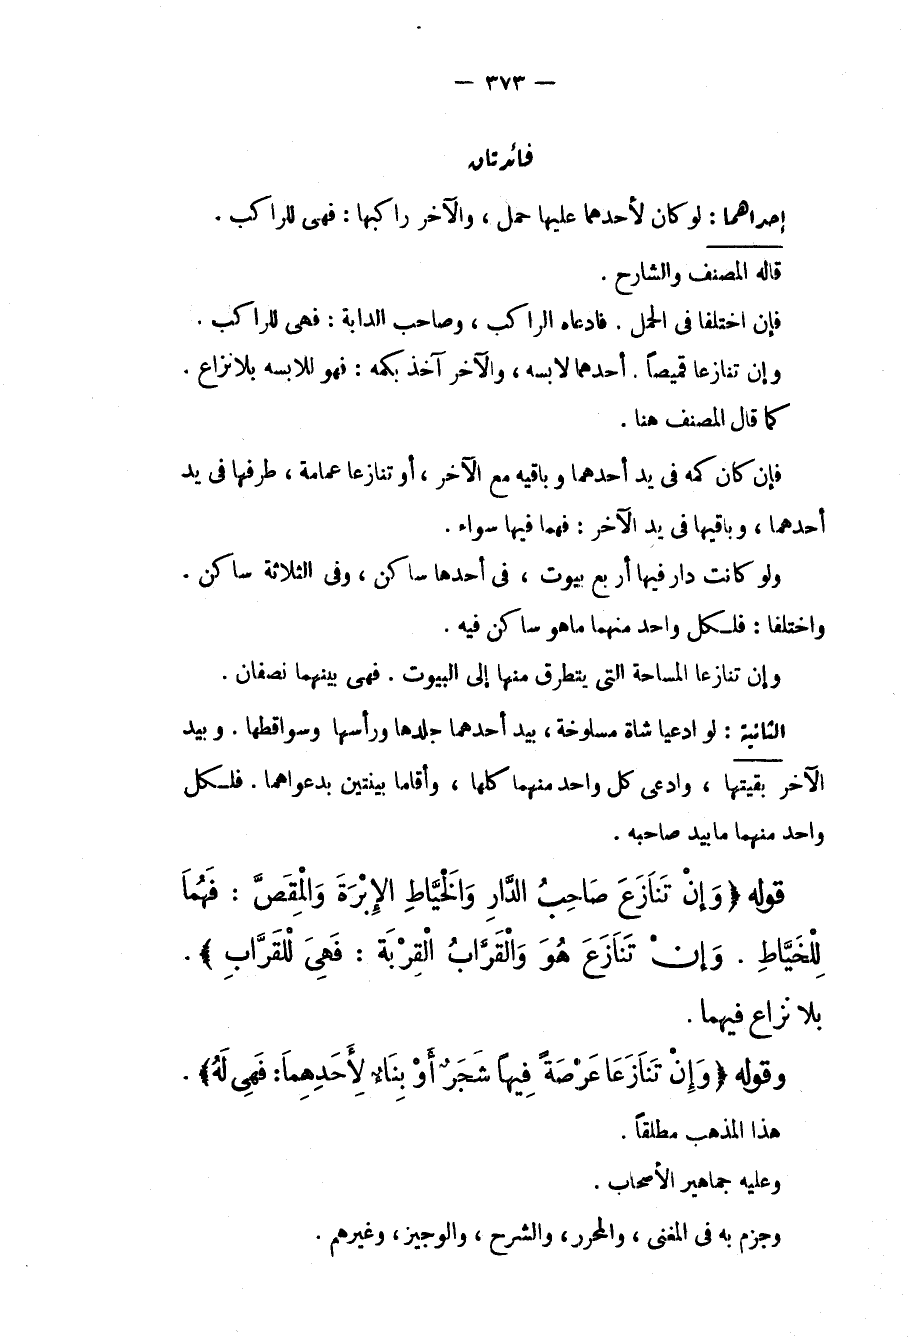 — ٣٧٣ —
فائدتان
إحداهما : لو كان لأحدهما عليها حمل ، والآخر راكبها : فهى للراكب .
قاله المصنف والشارح .
فإن اختلفا فى الحمل . فادعاه الراكب ، وصاحب الدابة : فهى للراكب .
وإن تنازعا قميصاً . أحدهما لابسه ، والآخر آخذ بكمه : فهو للابسه بلا نزاع .
كما قال المصنف هنا .
فإن كان كمه فى يد أحدهما وباقيه مع الآخر ، أو تنازعا عمامة ، طرفها فى يد
أحدهما ، وباقيها فى يد الآخر : فهما فيها سواء .
ولو كانت دار فيها أربع بيوت ، فى أحدها ساكن ، وفى الثلاثة ساكن .
واختلفا : فلكل واحد منهما ماهو ساكن فيه .
وإن تنازعا المساحة التى يتطرق منها إلى البيوت . فهى بينهما نصفان .
الثانية : لو ادعيا شاة مسلوخة ، بيد أحدهما جلدها ورأسها وسواقطها . وبيد
الآخر بقيتها ، وادعى كل واحد منهما كلها ، وأقاما بينتين بدعواهما . فلكل
واحد منهما مابيد صاحبه .
قوله ﴿ وَإِنْ تَنَازَعَ صَاحِبُ الدَّارِ وَالْخَيَّاطِ الإِبْرَةَ وَالْمِقَصَّ : فَهُمَا
لِلْخَيَّاطِ . وَإِنْ تَنَازَعَ هُوَ وَالْقَرَّابُ الْقِرْبَة : فَهِىَ لْلْقَرَّابِ ﴾ .
بلا نزاع فيهما .
وقوله ﴿ وَإِنْ تَنَازَعَا عَرْصَةً فِيهاَ شَجَرٌ أَوْ بِنَاءٌ لِأَحَدِهِماَ : فَهِى لَهُ ﴾ .
هذا المذهب مطلقاً .
وعليه جماهير الأصحاب .
وجزم به فى المغنى ، والمحرر ، والشرح ، والوجيز ، وغيرهم .